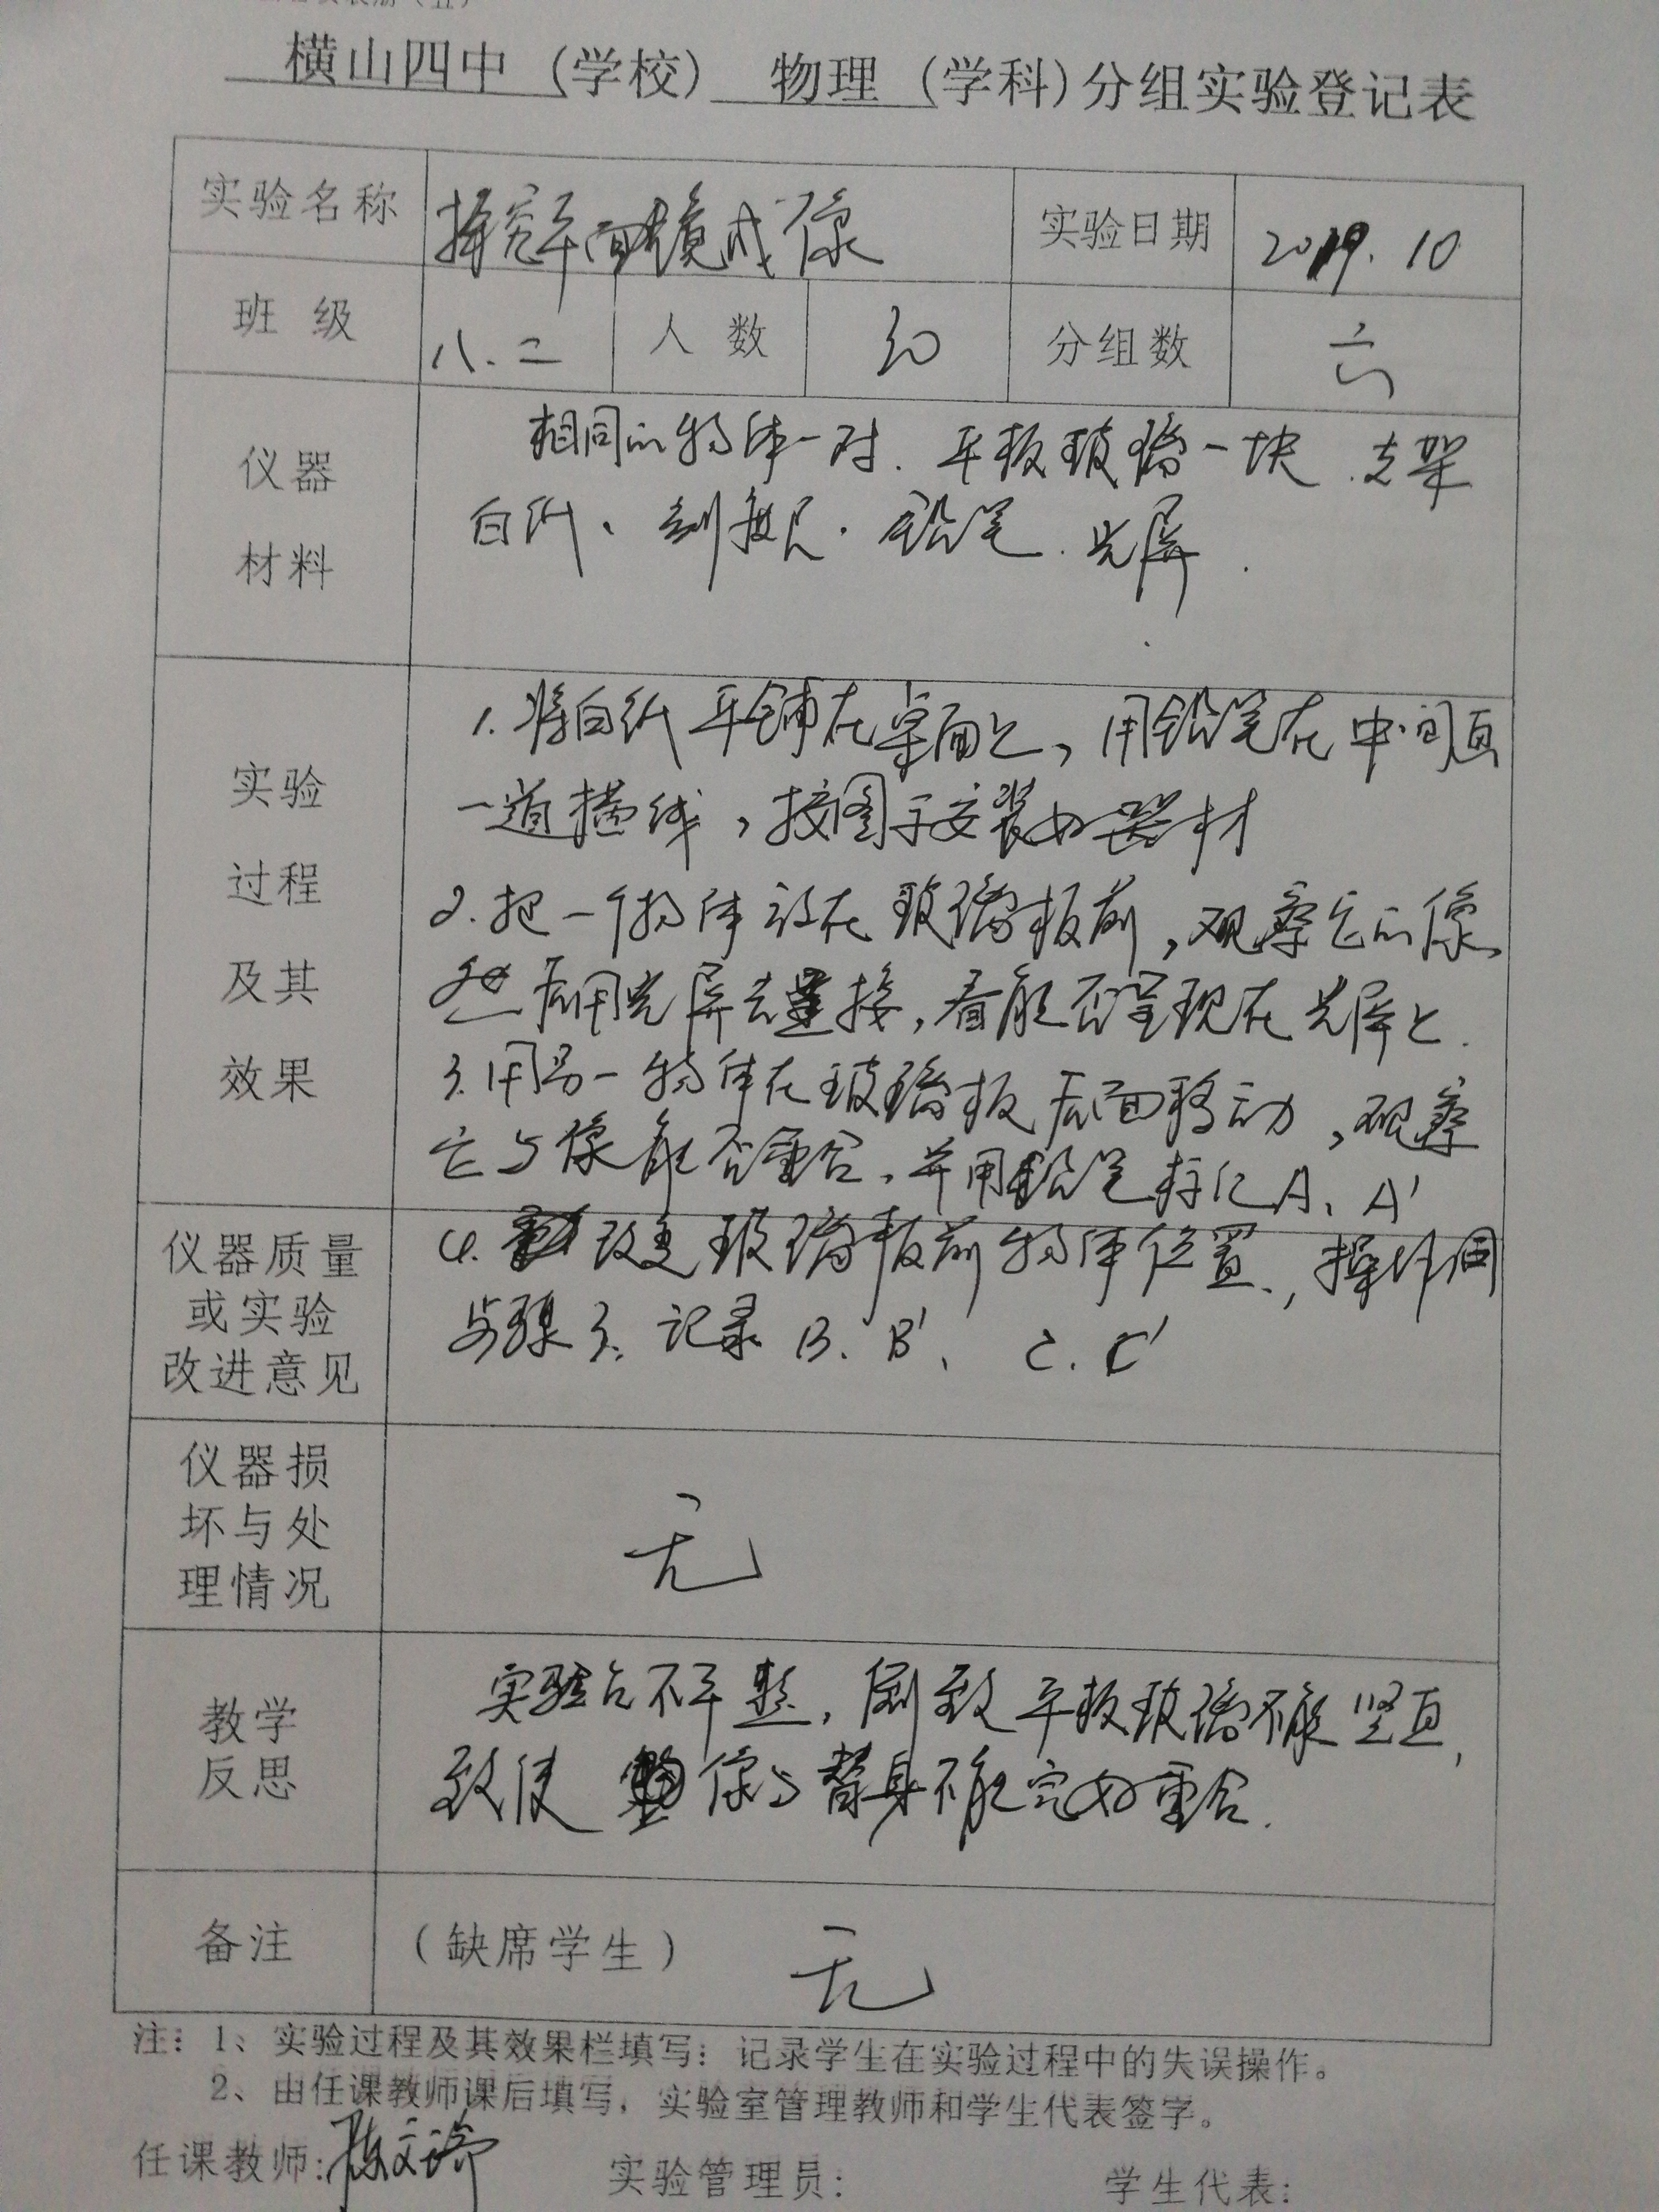 横山四中（学校） 物理（学科)分组实验登记表
实验名称 探究平面镜成像 实验日期 2019.10
班 级 八.二 人 数 50 分组数 六
仪器
材料
相同的物体一对.平板玻璃一块.支架
白纸、刻度尺.铅笔.光屏.
实验
过程
及其
效果
1.将白纸平铺在桌面上,用铅笔在中间画
一道横线,按图示安装好器材
2.把一个物体放在玻璃板前,观察它的像,
然后用光屏去承接,看能否呈现在光屏上.
3.用另一物体在玻璃板后面移动,观察
它与像能否重合,并用铅笔标记A、A'
仪器质量
或实验
改进意见
4.改变玻璃板前物体位置,操作同
步骤3.记录B、B'、C、C'
仪器损
坏与处
理情况
无
教学
反思
实验台不平整,导致平板玻璃不能竖直,
致使像与替身不能完好重合.
备注 （缺席学生） 无
注：1、实验过程及其效果栏填写：记录学生在实验过程中的失误操作。
2、由任课教师课后填写，实验室管理教师和学生代表签字。
任课教师: 实验管理员: 学生代表: